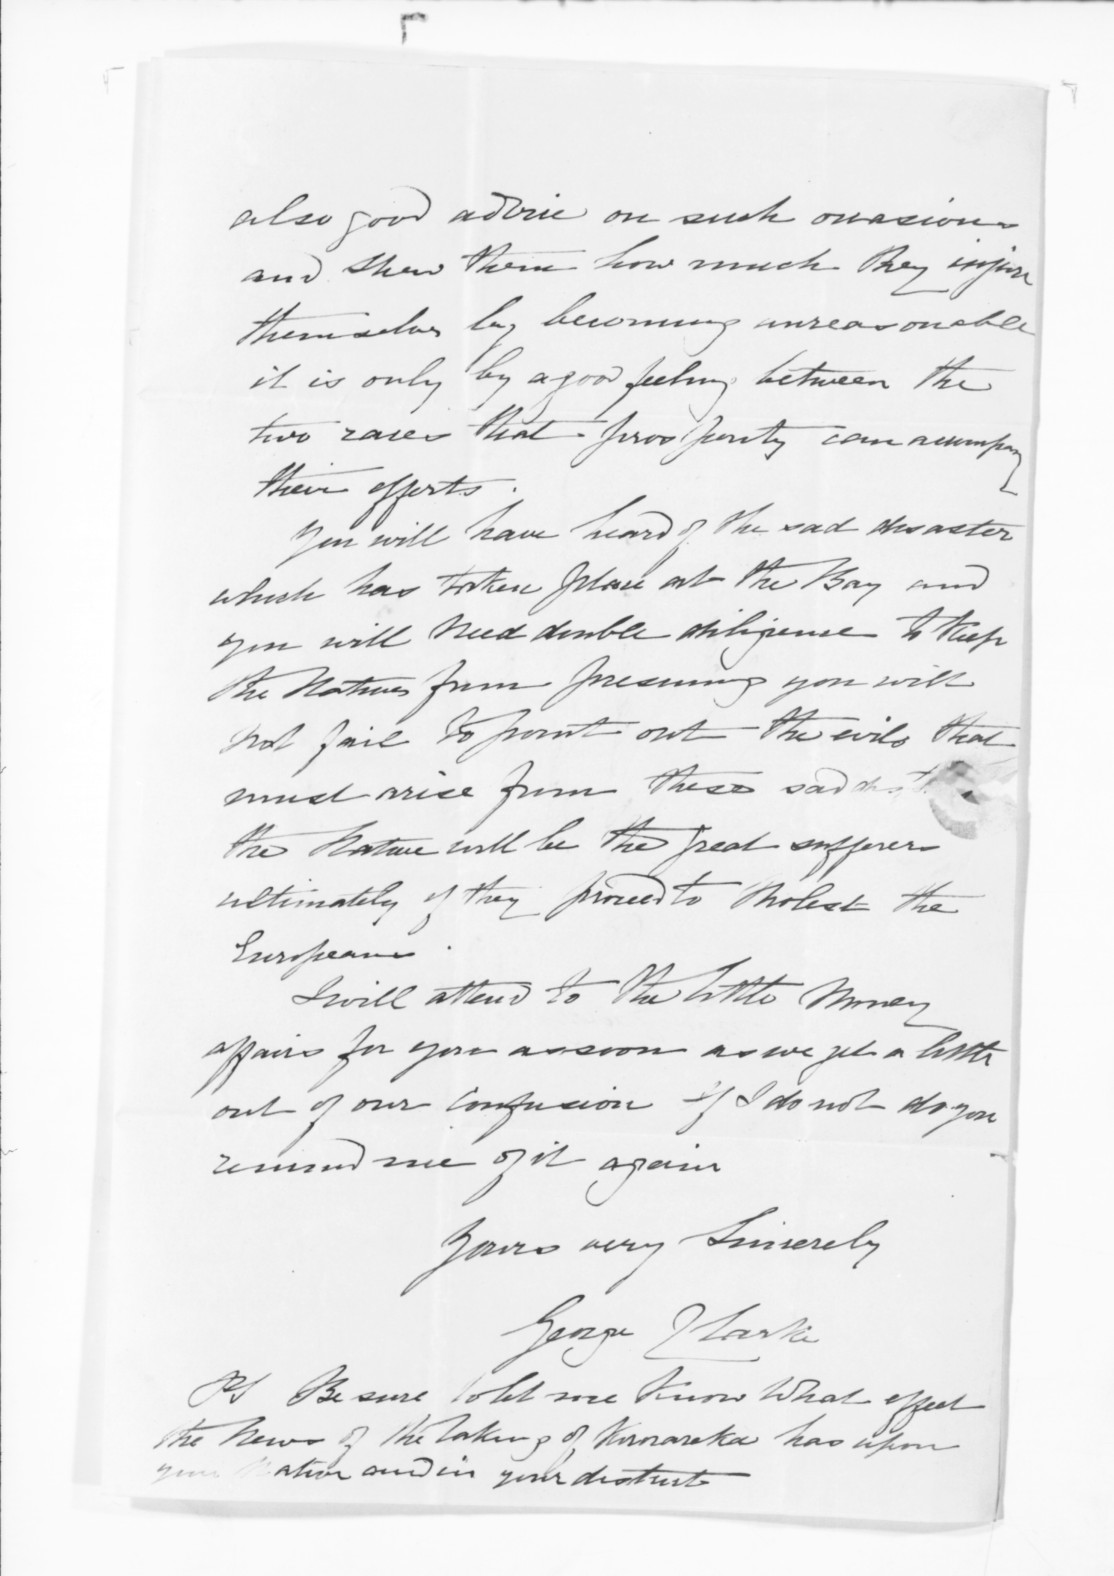 also good advice on such occasions
and shew them how much they injure
themselves by becoming unreasonable
it is only by a good feeling between the
two races that prosperity can accompany
their efforts.
You will have heard of the sad disaster
which has taken place at the Bay and
you will need double diligence to keep
the Natives from presuming you will
not fail to point out the evils that
must arise from these sad
the Native will be the great sufferers
ultimately if they proceed to molest the
Europeans.
I will attend to the little Money
affairs for you as soon as we get a little
out of our confusion if I do not do you
remind me of it again
Yours very Sincerely
George Clarke
PS Be sure to let me know what effect
the News of the taking of Kororareka has upon
your Natives and in your district